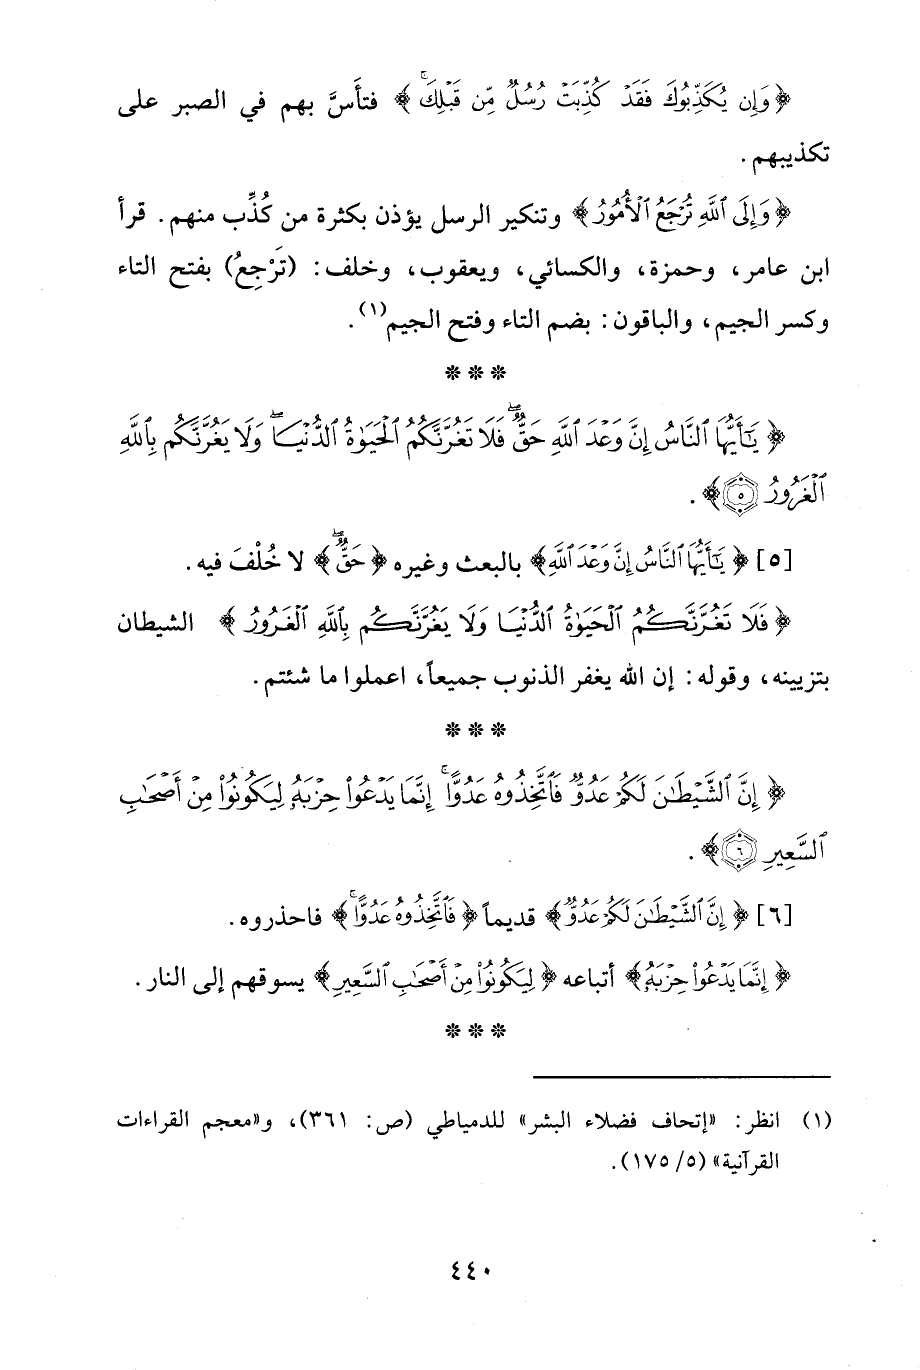 ﴿وَإِن يُكَذِّبُوكَ فَقَدْ كُذِّبَتْ رُسُلٌ مِّن قَبْلِكَ ۚ﴾ فتأَسَّ بهم في الصبر على
تكذيبهم.
﴿وَإِلَى ٱللَّهِ تُرْجَعُ ٱلْأُمُورُ﴾ وتنكير الرسل يؤذن بكثرة من كُذِّب منهم. قرأ
ابن عامر، وحمزة، والكسائي، ويعقوب، وخلف: (تَرْجِعُ) بفتح التاء
وكسر الجيم، والباقون: بضم التاء وفتح الجيم(١).
* * *
﴿يَٰٓأَيُّهَا ٱلنَّاسُ إِنَّ وَعْدَ ٱللَّهِ حَقٌّ ۖ فَلَا تَغُرَّنَّكُمُ ٱلْحَيَوٰةُ ٱلدُّنْيَا ۖ وَلَا يَغُرَّنَّكُم بِٱللَّهِ
ٱلْغَرُورُ ٥﴾.
[٥] ﴿يَٰٓأَيُّهَا ٱلنَّاسُ إِنَّ وَعْدَ ٱللَّهِ﴾ بالبعث وغيره ﴿حَقٌّ ۖ﴾ لا خُلْفَ فيه.
﴿فَلَا تَغُرَّنَّكُمُ ٱلْحَيَوٰةُ ٱلدُّنْيَا وَلَا يَغُرَّنَّكُم بِٱللَّهِ ٱلْغَرُورُ﴾ الشيطان
بتزيينه، وقوله: إن الله يغفر الذنوب جميعاً، اعملوا ما شئتم.
* * *
﴿إِنَّ ٱلشَّيْطَٰنَ لَكُمْ عَدُوٌّ فَٱتَّخِذُوهُ عَدُوًّا ۚ إِنَّمَا يَدْعُوا۟ حِزْبَهُۥ لِيَكُونُوا۟ مِنْ أَصْحَٰبِ
ٱلسَّعِيرِ ٦﴾.
[٦] ﴿إِنَّ ٱلشَّيْطَٰنَ لَكُمْ عَدُوٌّ﴾ قديماً ﴿فَٱتَّخِذُوهُ عَدُوًّا ۚ﴾ فاحذروه.
﴿إِنَّمَا يَدْعُوا۟ حِزْبَهُۥ﴾ أتباعه ﴿لِيَكُونُوا۟ مِنْ أَصْحَٰبِ ٱلسَّعِيرِ﴾ يسوقهم إلى النار.
* * *
(١) انظر: «إتحاف فضلاء البشر» للدمياطي (ص: ٣٦١)، و«معجم القراءات
القرآنية» (٥/ ١٧٥).
٤٤٠